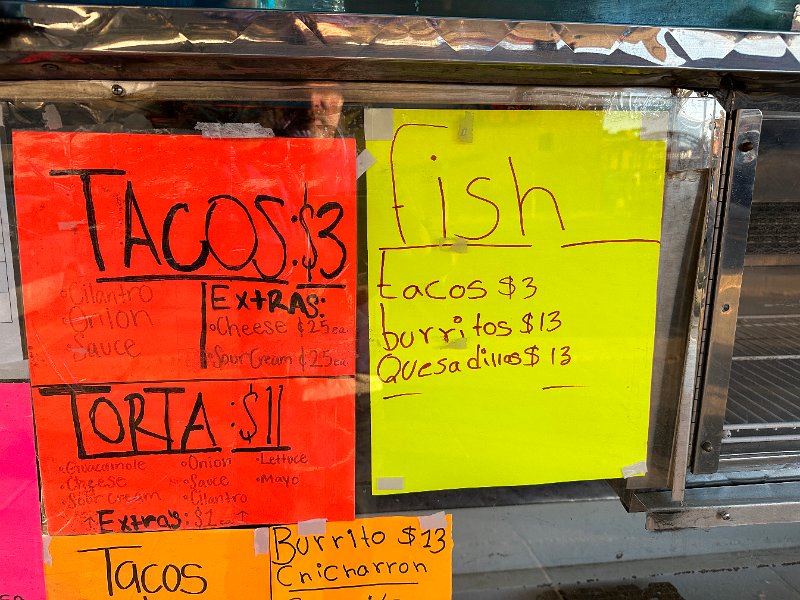 TACOS:$3
•Cilantro
•Onion
•Sauce
EXTRAS:
•Cheese ¢25ea.
•Sour Cream ¢25ea.
TORTA:$11
•Guacamole
•Cheese
•Sour Cream
•Onion
•Sauce
•Cilantro
•Lettuce
•Mayo
↑Extras:$1ea↑
Fish
tacos $3
burritos $13
Quesadillas $13
Tacos
Burrito $13
Chicharron